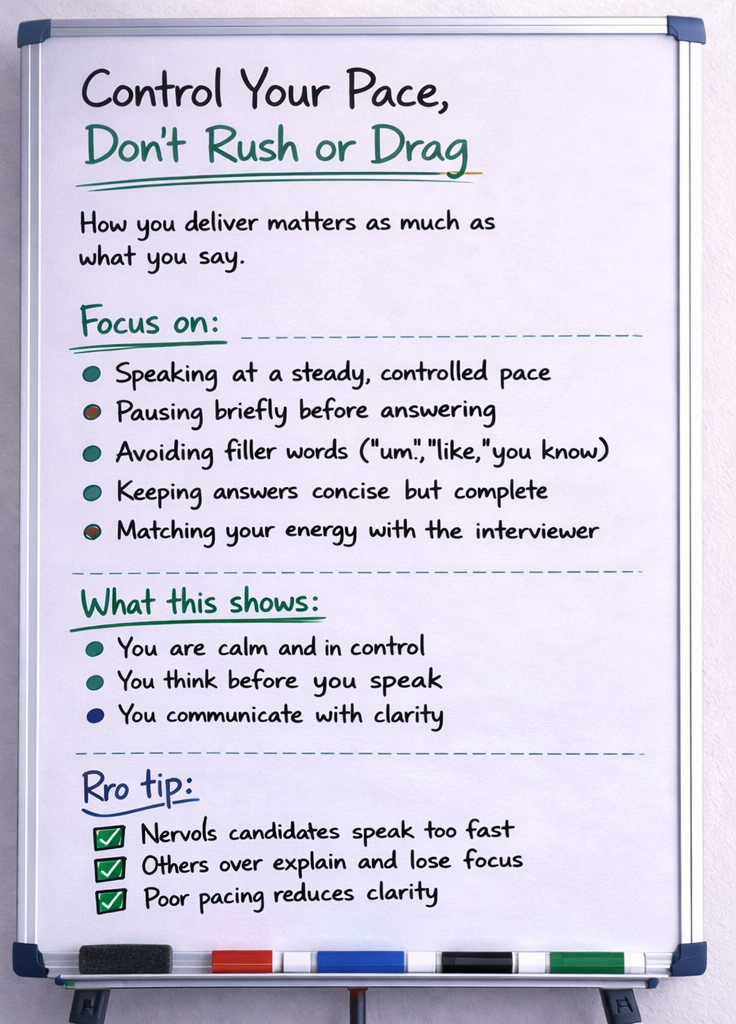 Control Your Pace,
Don't Rush or Drag
How you deliver matters as much as
what you say.
Focus on:
Speaking at a steady, controlled pace
Pausing briefly before answering
Avoiding filler words ("um.","like,"you know)
Keeping answers concise but complete
Matching your energy with the interviewer
What this shows:
You are calm and in control
You think before you speak
You communicate with clarity
Rro tip:
Nervols candidates speak too fast
Others over explain and lose focus
Poor pacing reduces clarity